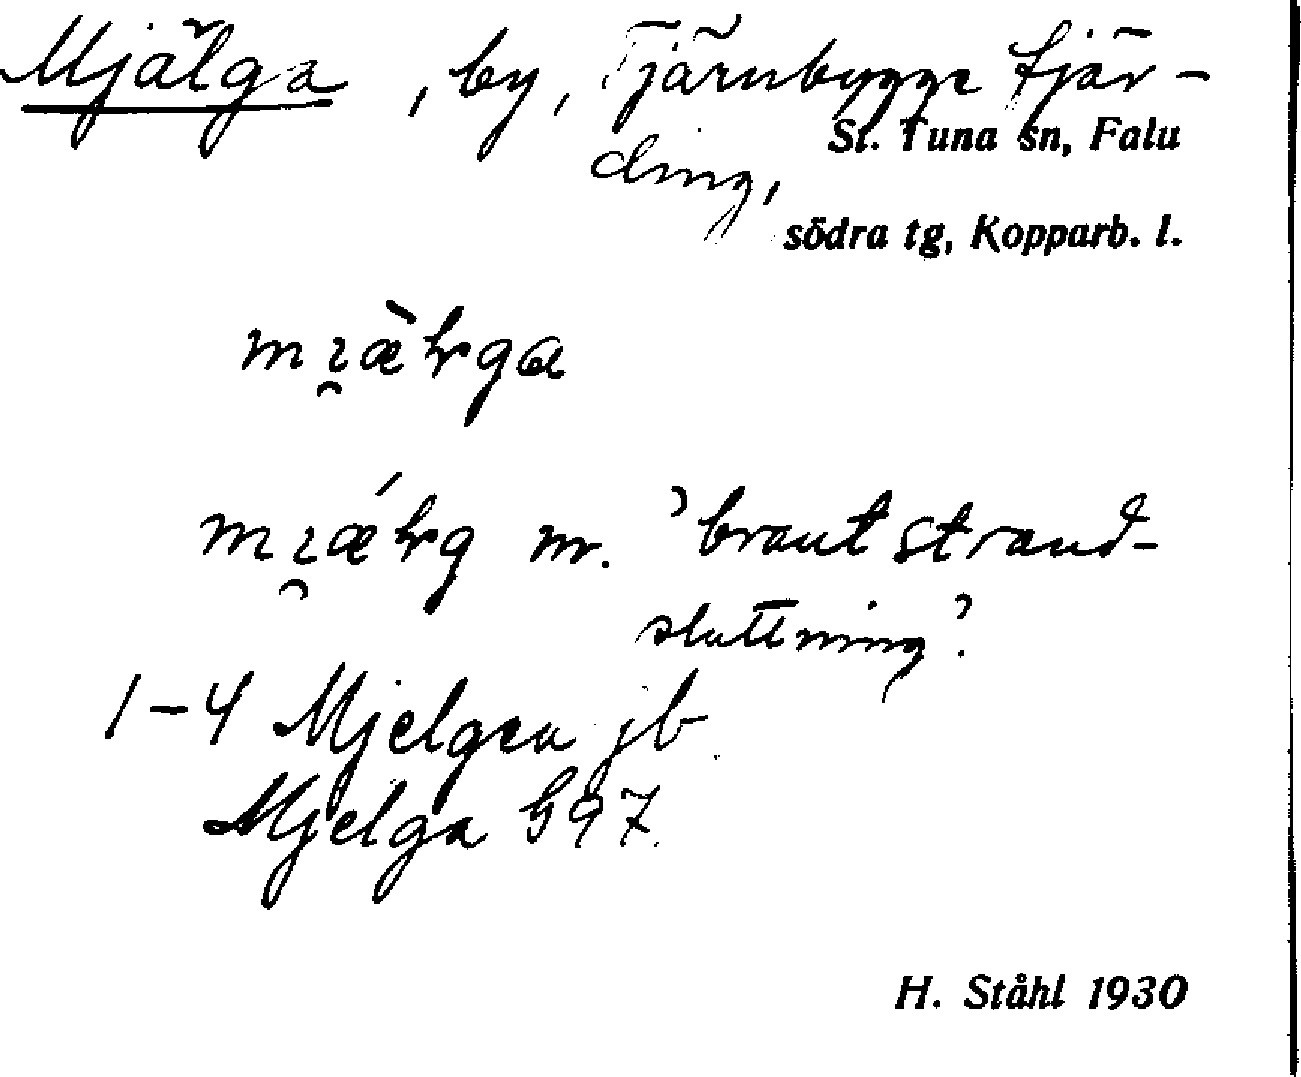 Mjälga, by, Tjärnbygge fjär-
St. Tuna sn, Falu
ding,
södra tg, Kopparb. l.
mi̯æ̀ɽga
mi̯ǽɽg m. 'brant strand-
sluttning'.
1-4 Mjelgen jb
Mjelga G97
H. Ståhl 1930